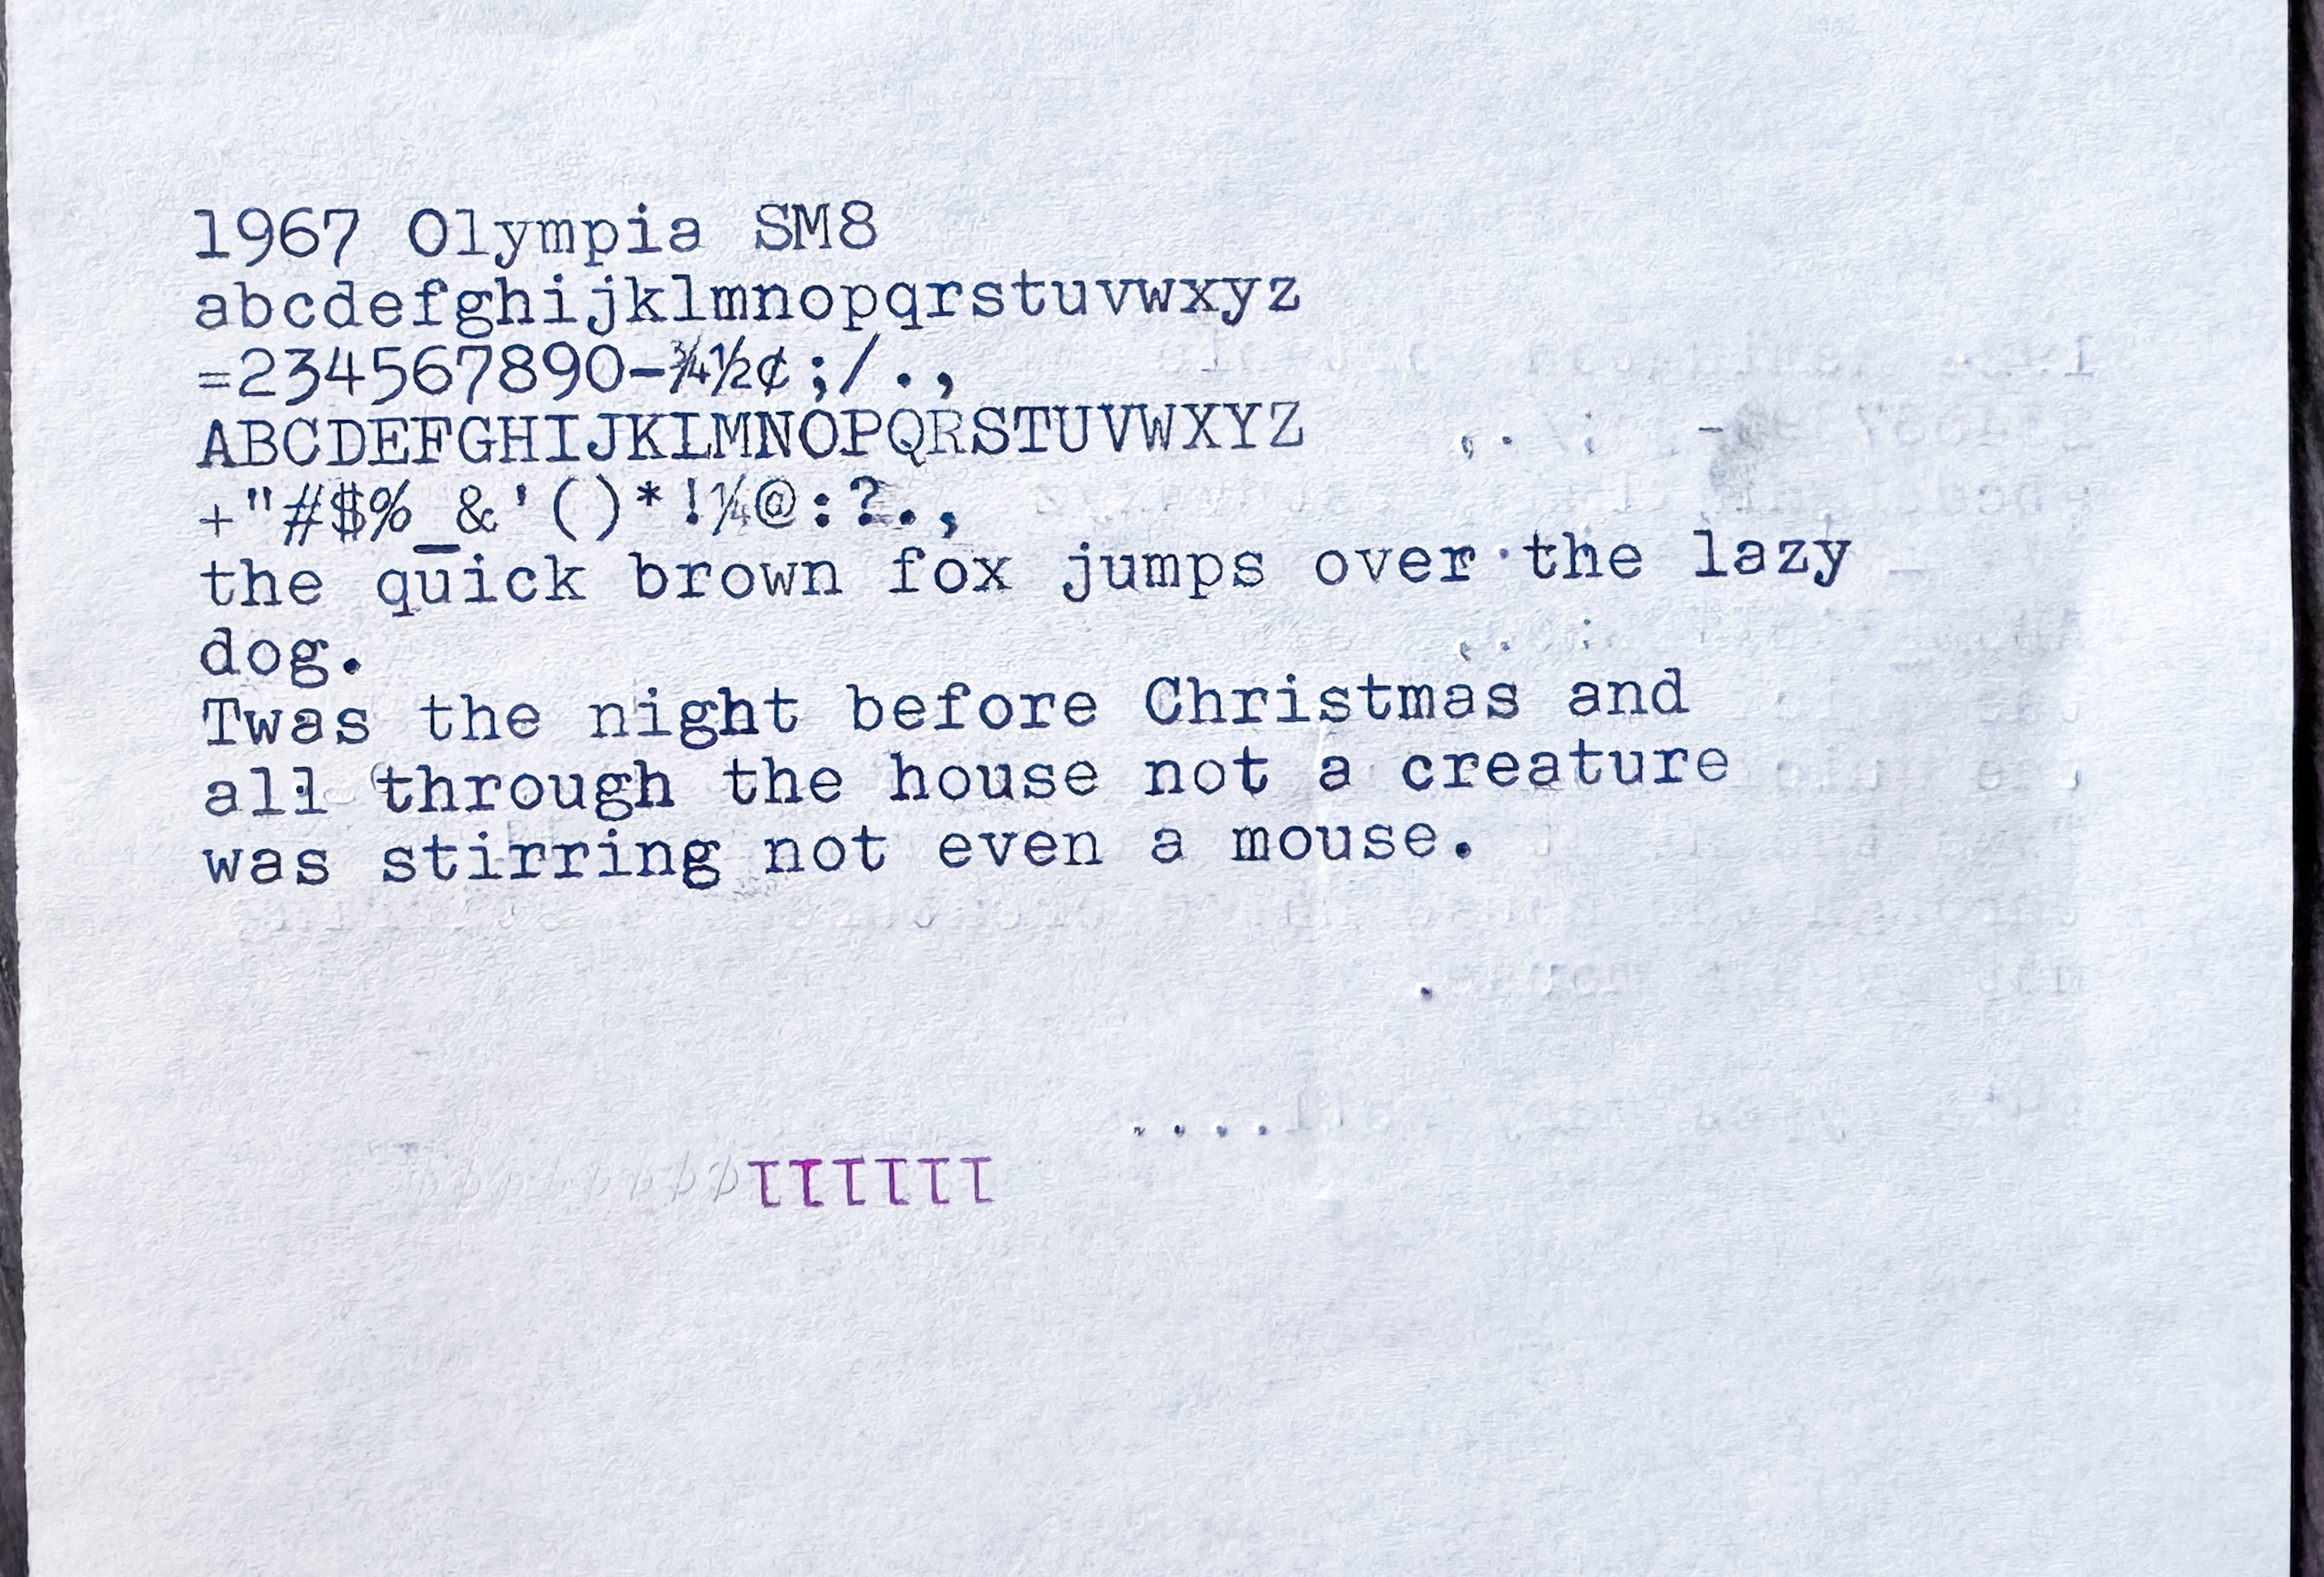 1967 Olympia SM8
abcdefghijklmnopqrstuvwxyz
=234567890-¾½¢;/.,
ABCDEFGHIJKLMNOPQRSTUVWXYZ
+"#$%_&'()*!¼@:?.,
the quick brown fox jumps over the lazy
dog.
Twas the night before Christmas and
all through the house not a creature
was stirring not even a mouse.